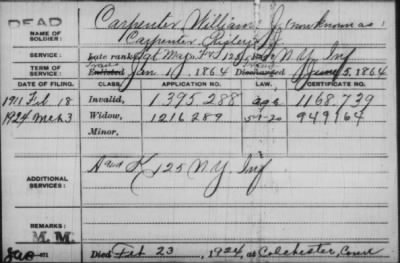 DEAD
NAME OF SOLDIER:
Carpenter William J. (now known as:
Carpenter Risley J.
SERVICE:
Late rank, Sgt Maj. F&S 125 N.Y. Inf
TERM OF SERVICE:
Enlisted Jan 1, 1864 Discharged June 5, 1864
DATE OF FILING. CLASS. APPLICATION NO. LAW. CERTIFICATE NO.
1911 Feb 18 Invalid, 1.395.288 1168.739
1924 Mch 3 Widow, 1216289 5-1-20 949764
Minor.
ADDITIONAL SERVICES:
H and K 125 N.Y. Inf
REMARKS:
M. M.
Died Feb 23, 1924, at Colchester, Conn